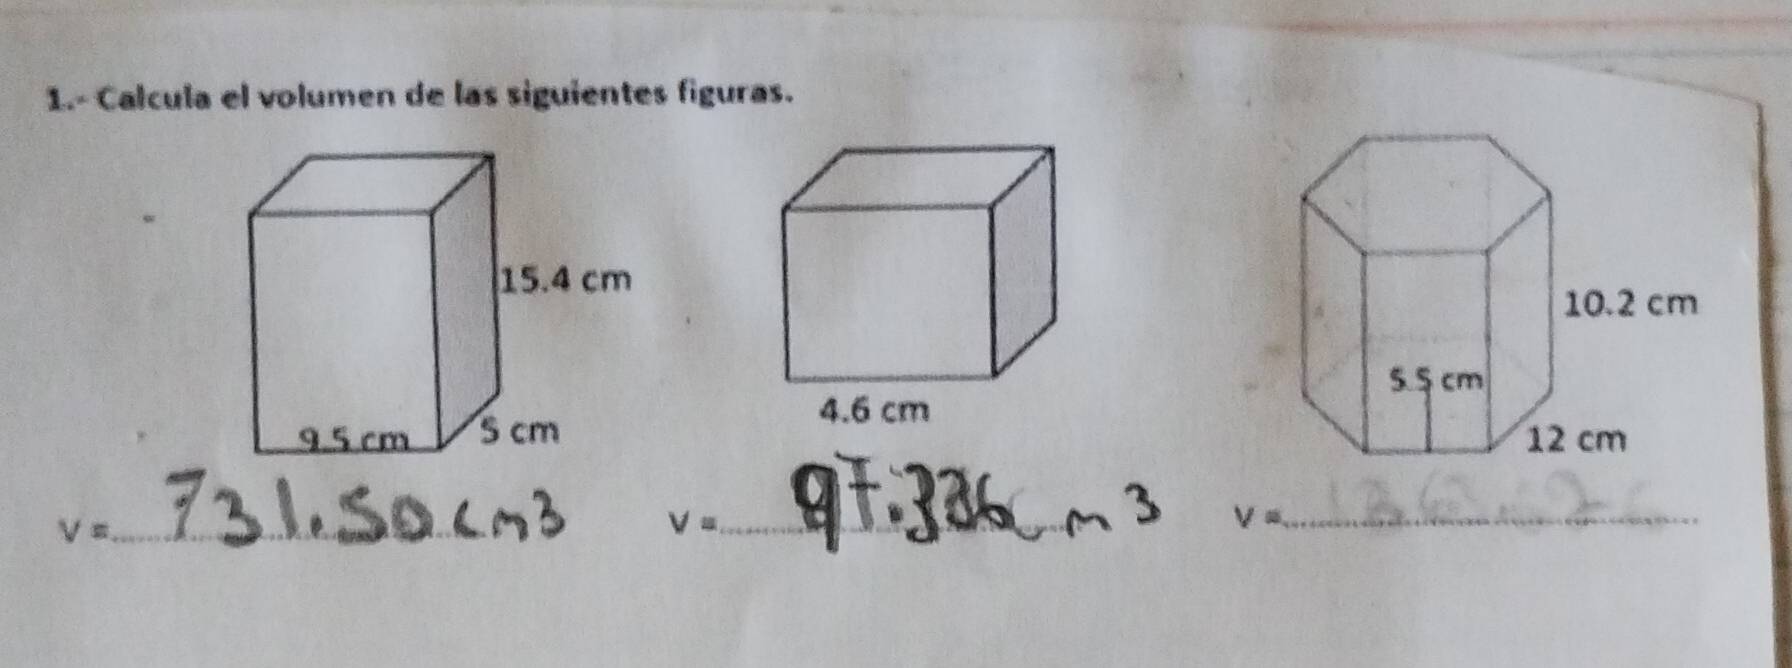 1.- Calcula el volumen de las siguientes figuras.
15.4 cm
9.5 cm
5 cm
4.6 cm
10.2 cm
5.5 cm
12 cm
v = 731.50 cm3 v = 97.336 cm3 v =